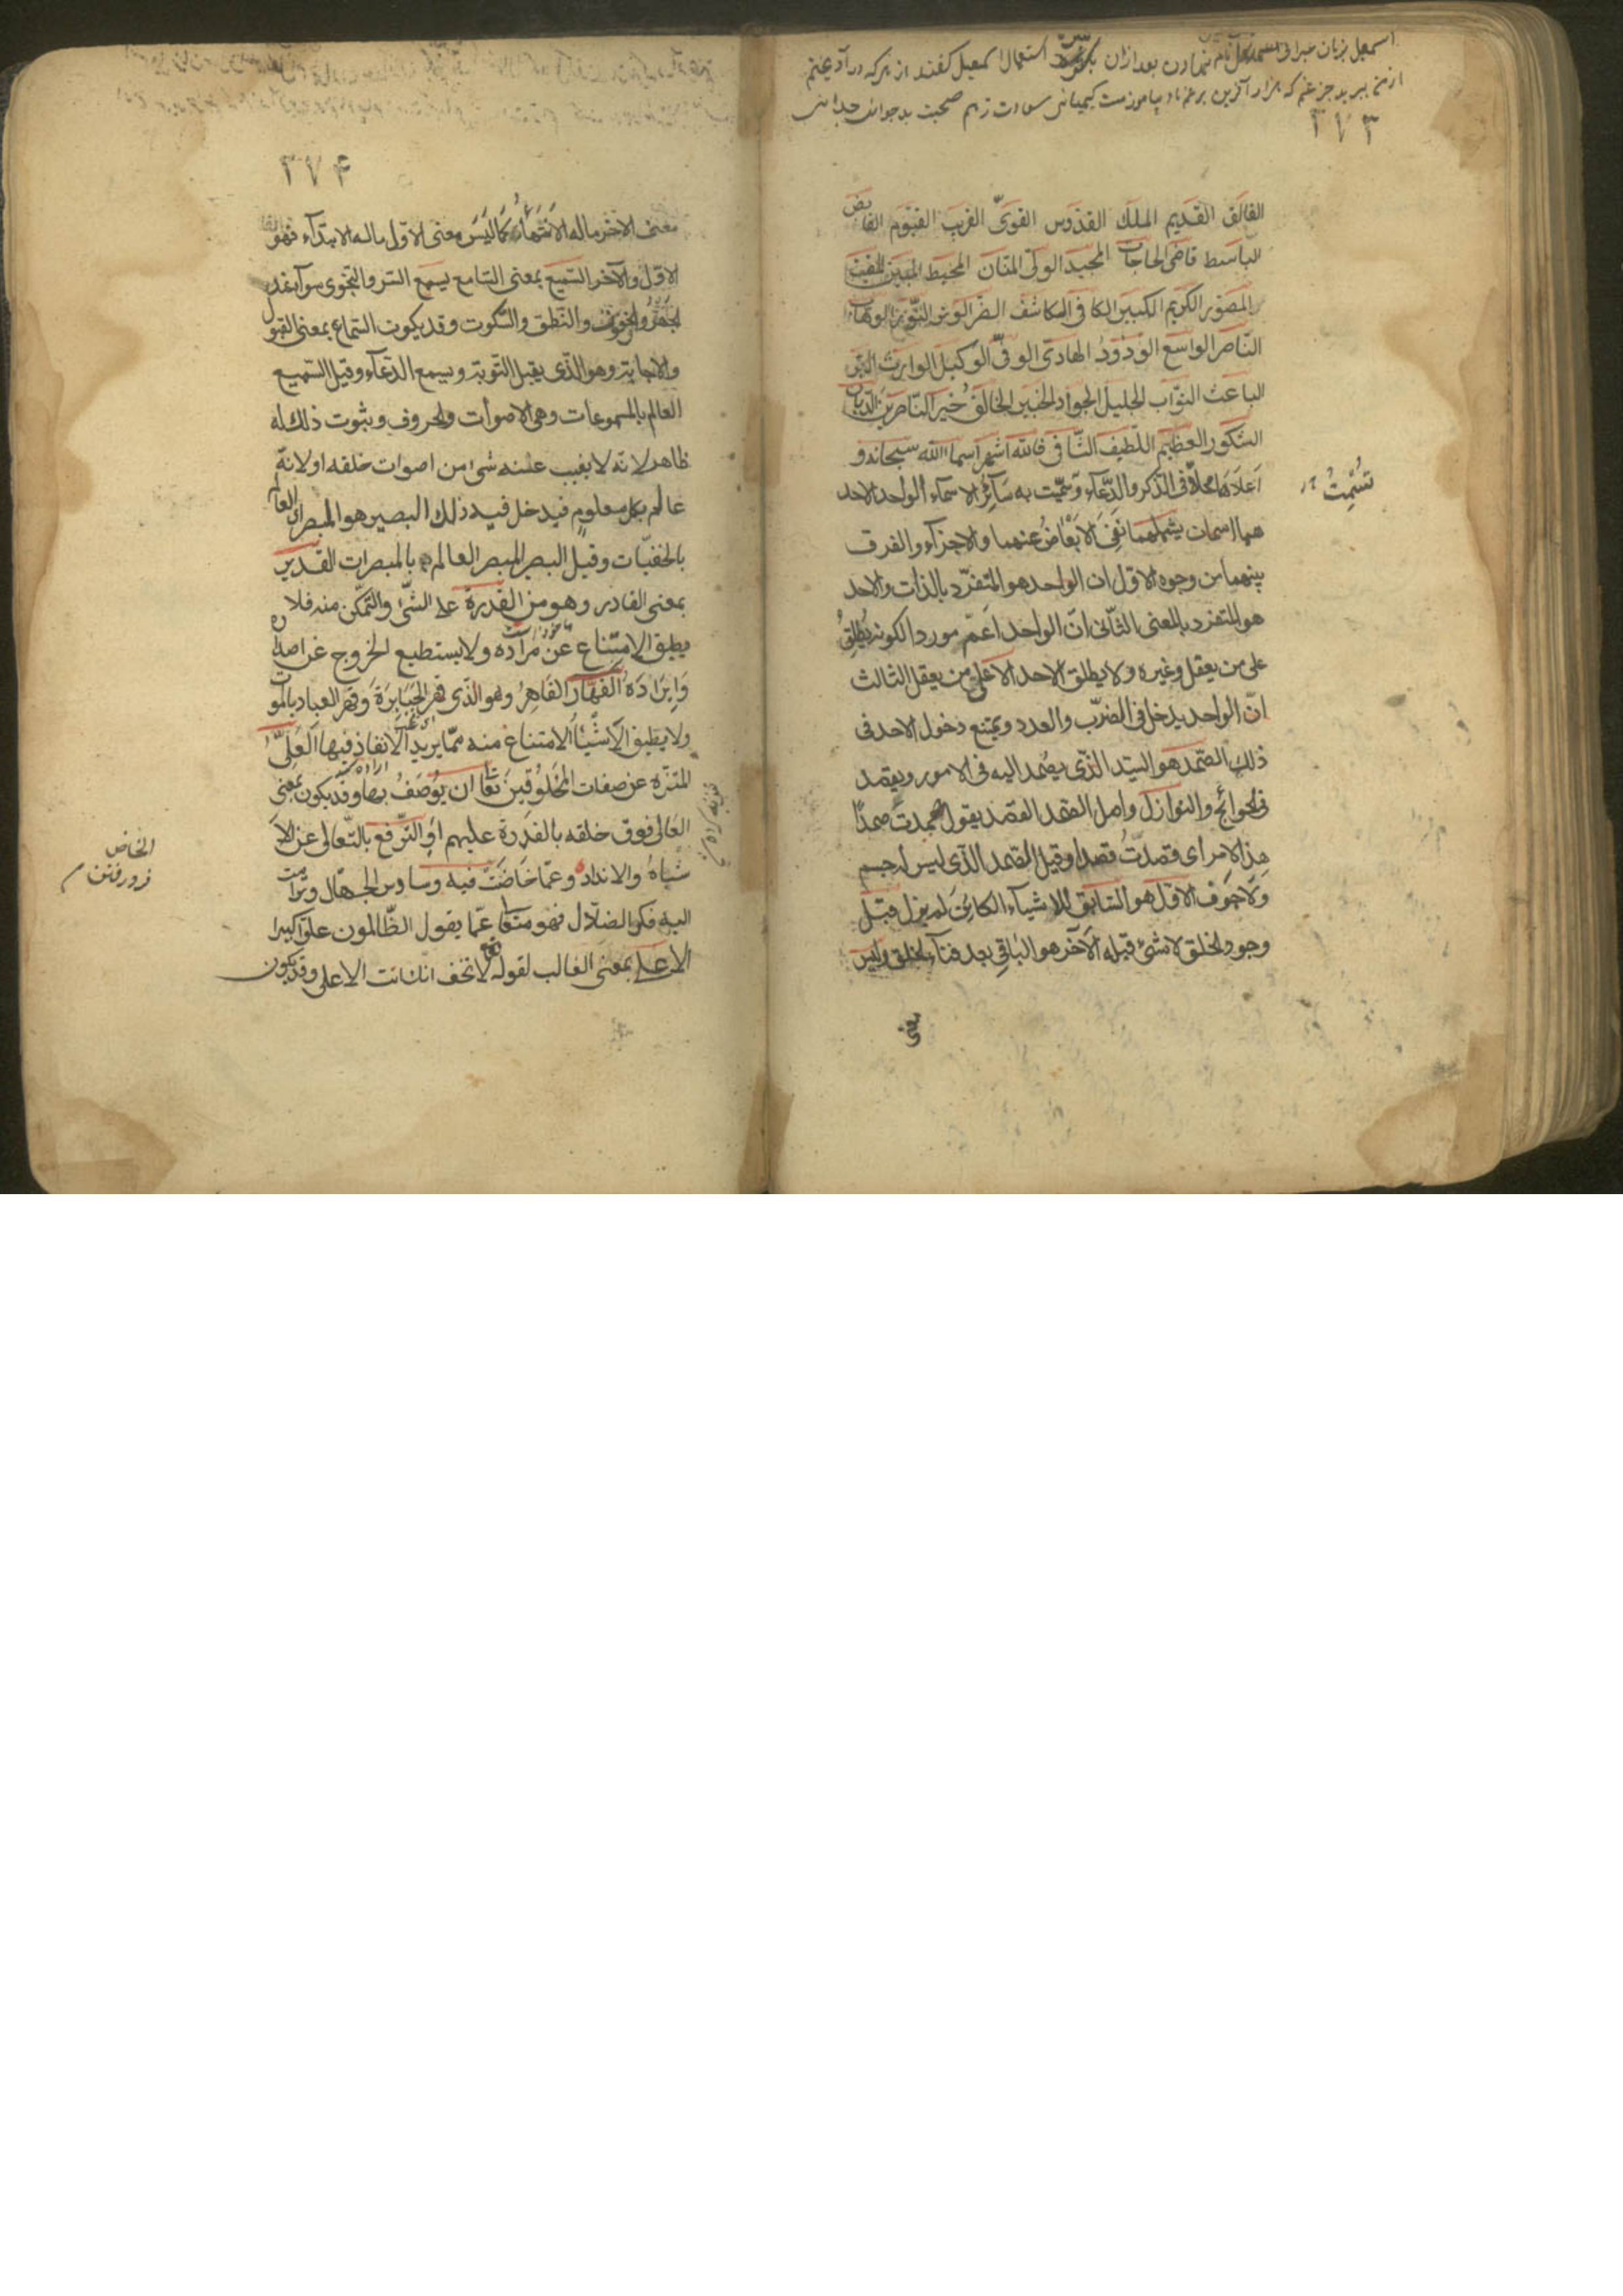 اسمعیل بزبان عبرانی نام نهادن بعد ازان استعمال اسمعیل کفتند از هر که در آوغیتم
از من ببرید جز غم که هزار آفرین بر غم باد بیاموزمت کیمیائی سعادت زهم صحبت بد جدائی جدائی
٣٧٣
الفالق القديم الملك القدوس القوىّ القريب القيّوم القابض
الباسط قاضى الحاجات المجيد الولىّ المنّان المحيط المبين المغيث
المصوّر الكريم الكبير الكافى الكاشف الضرّ الوتر النّور الوهّاب
النّاصر الواسع الودود الهادى الوفىّ الوكيل الوارث البرّ
الباعث التوّاب الجليل الجواد الخبير الخالق خير النّاصرين الديّان
الشكور العظيم اللّطيف الشّافى فالله اشهر اسماء الله سبحانه و
اعلاها محلا فى الذكر والدّعاء وسمّيت به سآئر الاسمآء الواحد الاحد
هما اسمان يشملهما نفى الابعاض عنهما والاجزآء والفرق
بينهما من وجوه الاوّل ان الواحد هو المتفرّد بالذات والاحد
هو المتفرد بالمعنى الثّانى انّ الواحد اعمّ موردا لكونه يطلق
على من يعقل وغيره ولا يطلق الاحد الا على من يعقل الثالث
انّ الواحد يدخل فى الضرّب والعدد ويمتنع دخول الاحد فى
ذلك الصّمد هو السيّد الذّى يصمد اليه فى الامور ويقصد
فى الحوائج والنوازل واصل الصّمد القصد يقول صمدت صمدًا
هذا الامر اى قصدتُ قصدا وقيل الصّمد الذّى ليس له جسم
ولا جوف الاوّل هو السّابق للاشيآء الكائن لم يزل قبل
وجود الخلق لا شئ قبله الآخر هو الباقى بعد فنآء الخلق وليس
معنى
٣٧۴
معنى الآخر ماله الانتهاء كما ليس معنى الاوّل ماله الابتدآء فهو
الاوّل والآخر السّميع بمعنى السّامع يسمع السّر والنّجوى سوآء عنده
الجهر والخفوت والنّطق والسّكوت وقد يكون السّماع بمعنى القبول
والاجابة وهو الذّى يقبل التّوبة ويسمع الدّعآء وقيل السّميع
العالم بالمسموعات وهى الاصوات والحروف وثبوت ذلك له
ظاهر لانّه لا يغيب عنه شئ من اصوات خلقه او لانّه
عالم بكل معلوم فيدخل فيه ذلك البصير هو المبصر اى العالم
بالخفيّات وقيل البصير المبصر العالم بالمبصرات القدير
بمعنى القادر وهو من القدرة على الشّئ والتّمكّن منه فلا
يطيق الامتناع عن مراده ولا يستطيع الخروج عن اصداره
وايراده القهّار القاهر وهو الذى قهر الجبابرة وقهر العباد بالموت
ولا يطيق الاشيآء الامتناع منه ممّا يريد الانفاذ فيها العلىّ
المتنزّه عن صفات المخلوقين تعا ان يوصف بها وقد يكون بمعنى
العالى فوق خلقه بالقدرة عليهم او التّرفع بالتّعالى عن الا
شباه والانداد وعمّا خاضت فيه وساوس الجهّال وترامت
اليه فكر الضلّال فهو متعا عمّا يقول الظّالمون علوّا كبيرا
الاعلى بمعنى الغالب لقوله تعا لا تخف انك انت الاعلى وقد يكون
الخاض
فرو رفتن